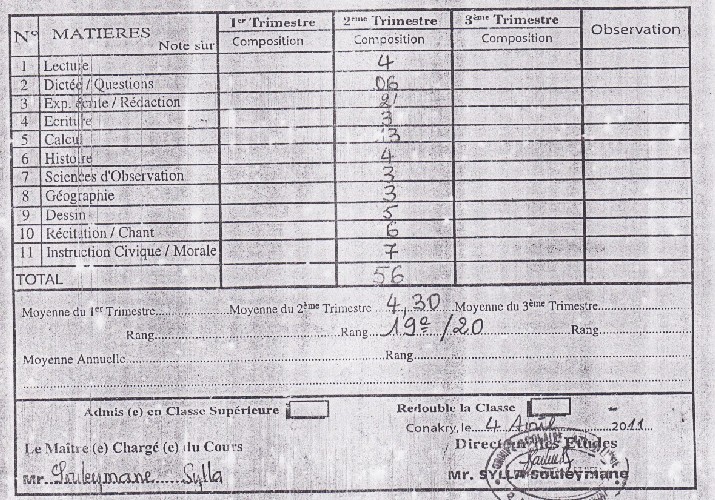 N° MATIERES Note sur 1er Trimestre Composition 2ème Trimestre Composition 3ème Trimestre Composition Observation
1 Lecture 4
2 Dictée / Questions 06
3 Exp. écrite / Rédaction 2
4 Ecriture 3
5 Calcul 13
6 Histoire 4
7 Sciences d'Observation 3
8 Géographie 3
9 Dessin 5
10 Récitation / Chant 6
11 Instruction Civique / Morale 7
TOTAL 56
Moyenne du 1er Trimestre Moyenne du 2ème Trimestre 4,30 Moyenne du 3ème Trimestre
Rang Rang 19e/20 Rang
Moyenne Annuelle Rang
Admis (e) en Classe Supérieure Redouble la Classe
Conakry, le 4 Avril 2011
Le Maître (e) Chargé (e) du Cours Directeur des Etudes
Mr. Souleymane Sylla Mr. SYLLA Souleymane